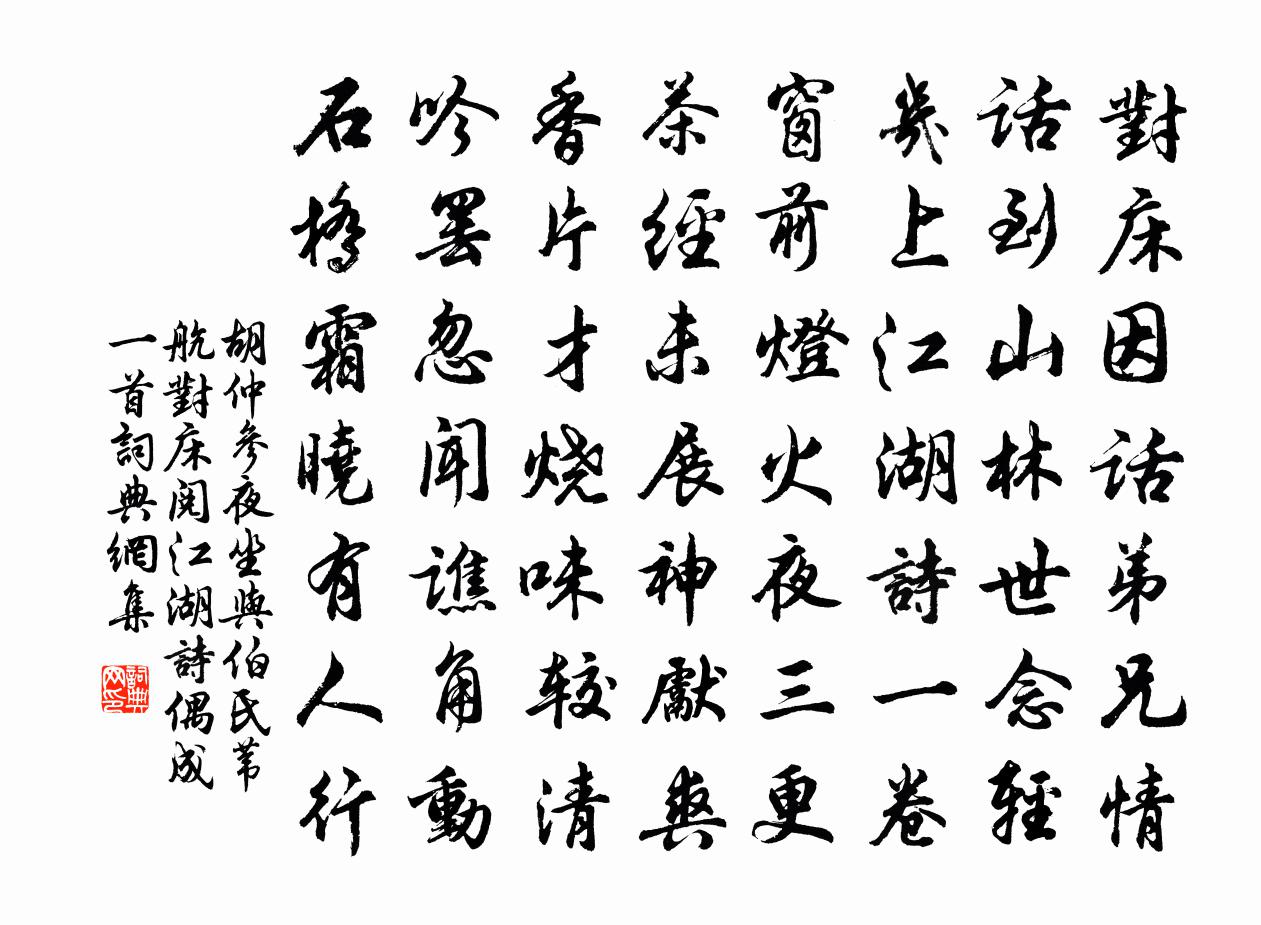 對床因话弟兄情
话到山林世念輕
幾上江湖詩一卷
窗前燈火夜三更
茶經未展神獻爽
香片才烧味较清
吟罢忽闻譙角動
石橋霜曉有人行
胡仲參夜坐與伯氏苇
航對床閱江湖詩偶成
一首詞典網集
詞典
网印